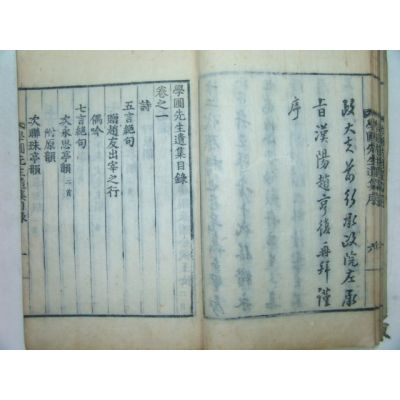 學圃先生遺集序
政大夫前行承政院左承
旨漢陽趙亨復再拜謹
序
學圃先生遺集目錄
卷之一
詩
五言絕句
贈趙友出宰之行
偶吟
七言絕句
次永思亭韻二首
附原韻
次聯珠亭韻
學圃先生遺集目錄 一